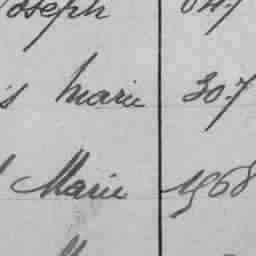 Joseph 647
s marie 307
Marie 1968